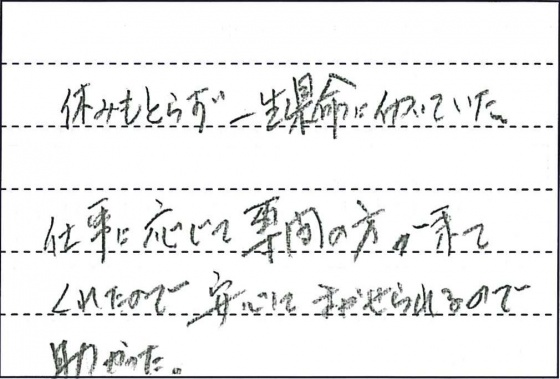 休みもとらず一生懸命に付いていた。
仕事に応じて専門の方が来て
くれたので安心してまかせられるので
助かった。